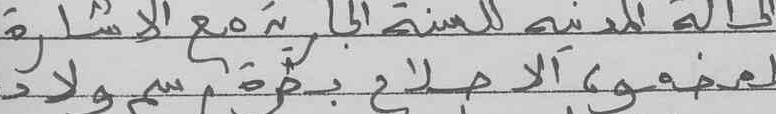 الحالة المدنية للسنة الجارية مع الاشارة
لمضمون الاصلاح بطرة رسم ولاد